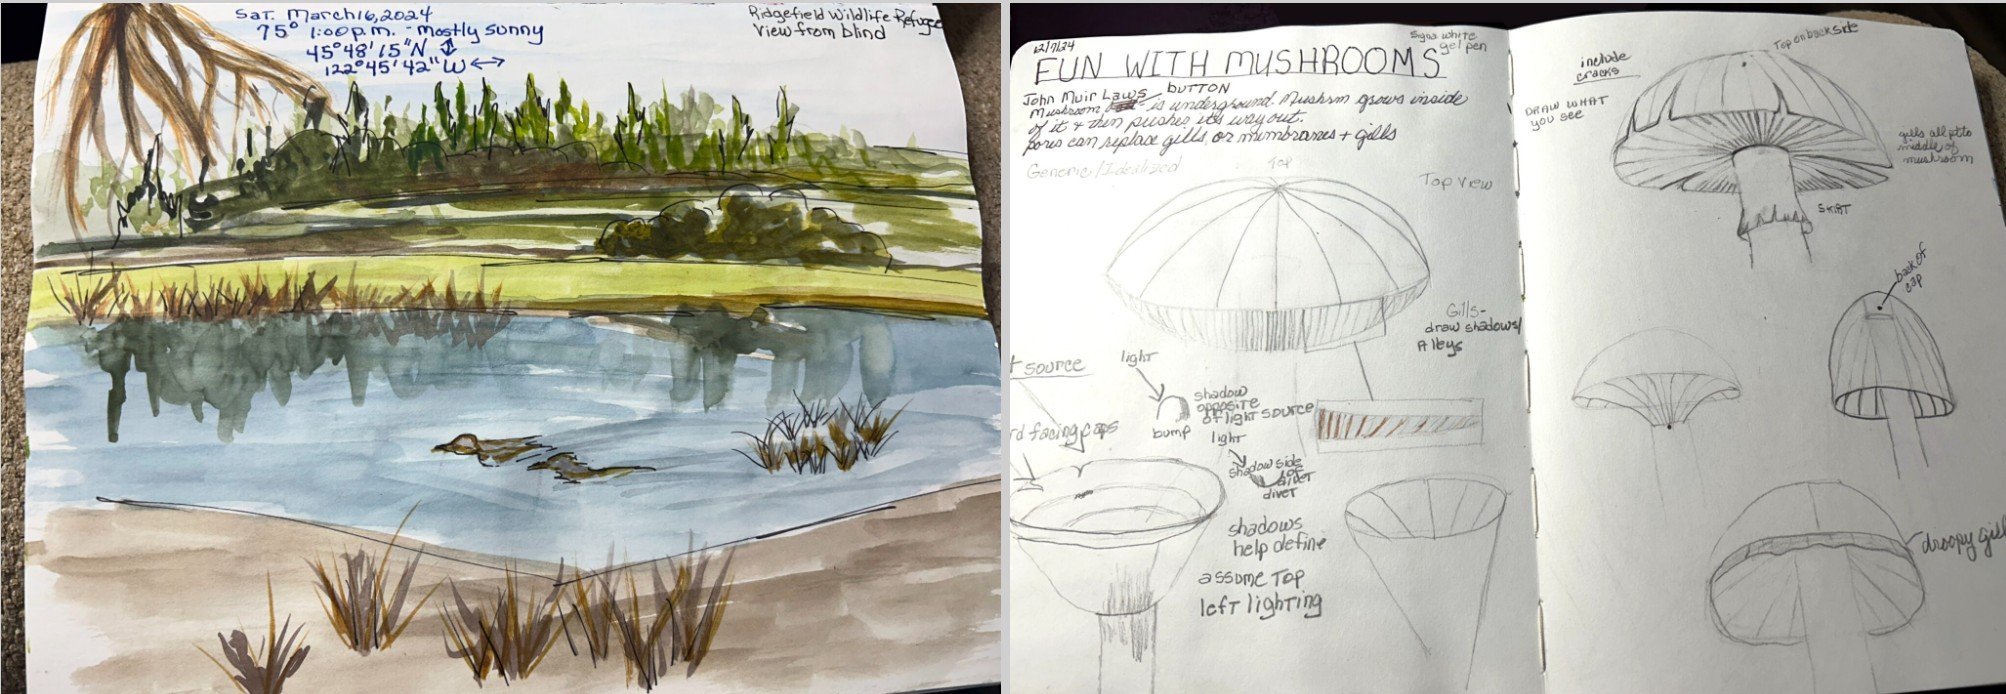 Sat. March 16, 2024
75° 1:00 p.m. - mostly sunny
45°48'15"N
122°45'42"W
Ridgefield Wildlife Refuge
View from blind
12/7/24
Signo white
gel pen
FUN WITH MUSHROOMS
John Muir Laws BUTTON
Mushroom is underground. Mushrm grows inside
of it + then pushes it's way out.
pores can replace gills, or membranes + gills
Generic/Idealized
Top
Top View
Gills-
draw shadows/
Alleys
source
light
shadow
opposite
of light source
bump
rd facing caps
light
shadow side
of
divet
divet
shadows
help define
assume top
left lighting
include
cracks
Top on back side
DRAW WHAT
you see
gills all pt to
middle of
mushroom
SKIRT
back of
cap
droopy gill